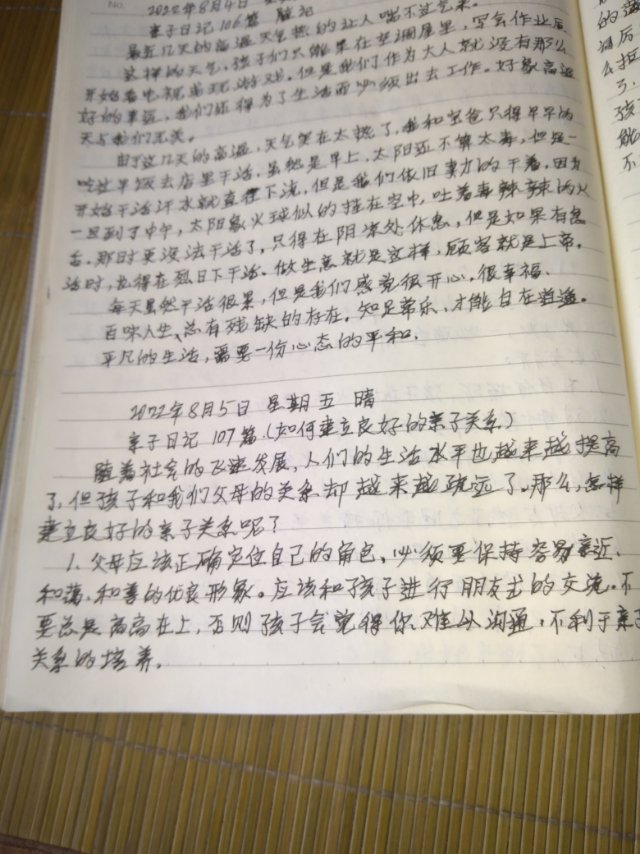 NO.
2022年8月4日 星
亲子日记106篇 随记
最近几天的高温天气热的让人喘不过气来。
这样的天气,孩子们只能呆在空调屋里,写会作业后
开始看电视或玩游戏。但是我们作为大人就没有那么
好的幸运,我们还得为了生活而必须出去工作。好象高温
天与我们无关。
由于这几天的高温,天气实在太热了,我和宝爸只得早早的
吃过早饭去店里干活。虽然是早上,太阳还不算太毒,但是一
开始干活汗水就直往下流,但是我们依旧卖力的干着,因为
一旦到了中午,太阳象火球似的挂在空中,吐着毒辣辣的火
舌。那时更没法干活了,只得在阴凉处休息,但是如果有急
活时,也得在烈日下干活。做生意就是这样,顾客就是上帝。
每天虽然干活很累,但是我们感觉很开心,很幸福。
百味人生,总有残缺的存在。知足常乐,才能自在逍遥。
平凡的生活,需要一份心态的平和.
2022年8月5日 星期五 晴
亲子日记107篇.(如何建立良好的亲子关系)
随着社会的飞速发展,人们的生活水平也越来越提高
了,但孩子和我们父母的关系却越来越疏远了。那么,怎样
建立良好的亲子关系呢?
1.父母应该正确定位自己的角色,必须要保持容易亲近、
和蔼、和善的优良形象。应该和孩子进行朋友式的交流。不
要总是高高在上,否则孩子会觉得你难以沟通,不利于亲子
关系的培养。
的
后
么
了.
孩
能
不